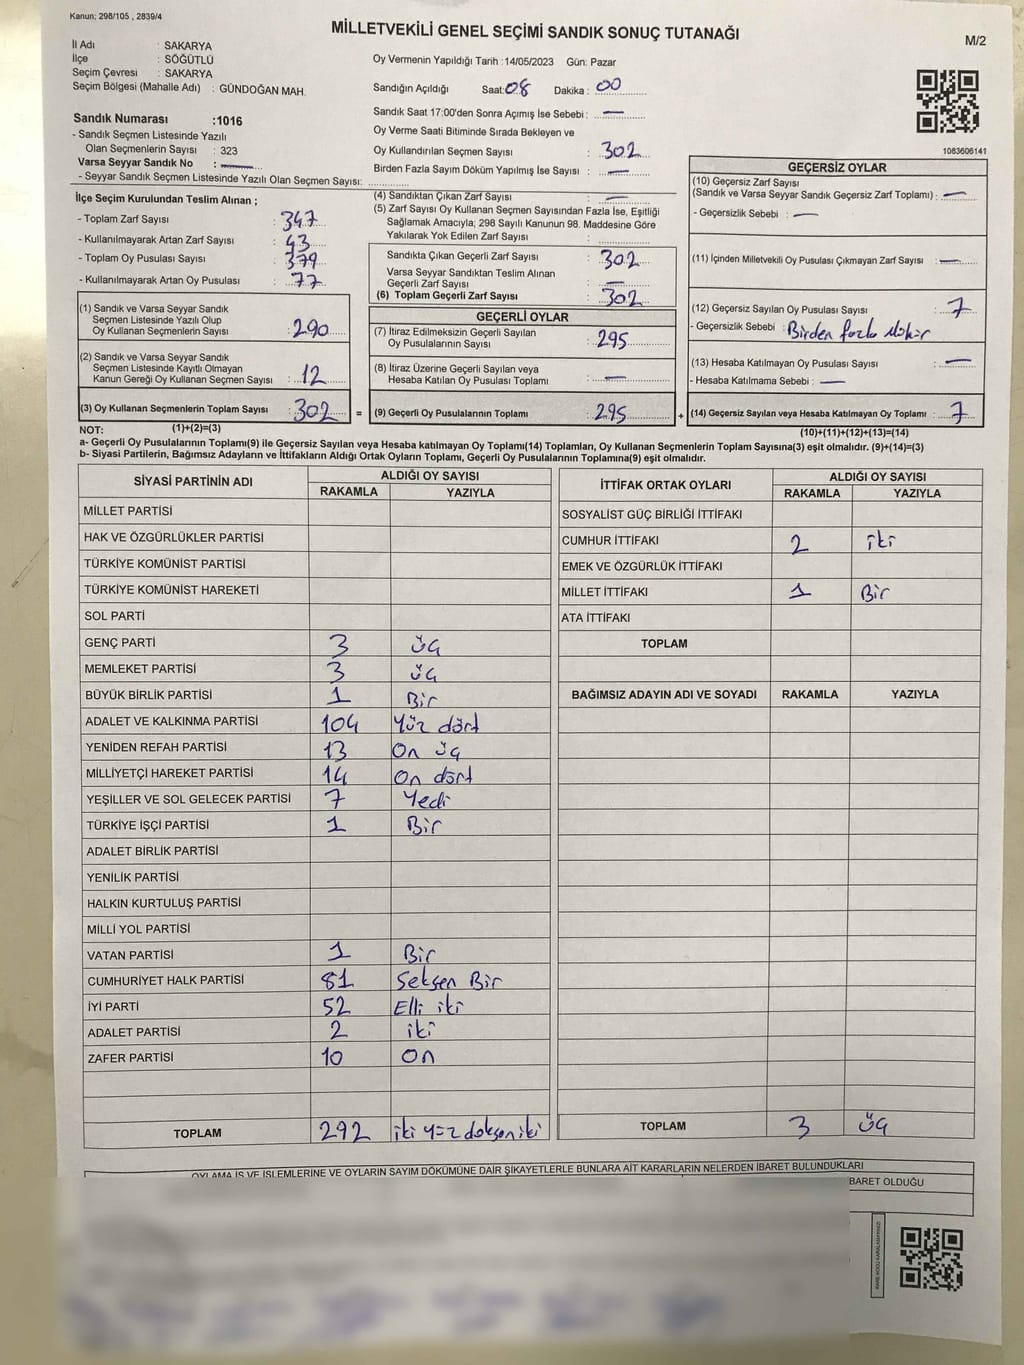 Kanun; 298/105 , 2839/4
MİLLETVEKİLİ GENEL SEÇİMİ SANDIK SONUÇ TUTANAĞI
M/2
İl Adı : SAKARYA
İlçe : SÖĞÜTLÜ
Seçim Çevresi : SAKARYA
Seçim Bölgesi (Mahalle Adı) : GÜNDOĞAN MAH.
Oy Vermenin Yapıldığı Tarih :14/05/2023 Gün: Pazar
Sandığın Açıldığı Saat: 08 Dakika : 00
Sandık Saat 17:00'den Sonra Açımış İse Sebebi : —
Oy Verme Saati Bitiminde Sırada Bekleyen ve
Oy Kullandırılan Seçmen Sayısı : 302
Birden Fazla Sayım Döküm Yapılmış İse Sayısı : —
Sandık Numarası :1016
- Sandık Seçmen Listesinde Yazılı
Olan Seçmenlerin Sayısı : 323
Varsa Seyyar Sandık No : —
- Seyyar Sandık Seçmen Listesinde Yazılı Olan Seçmen Sayısı:
1083606141
İlçe Seçim Kurulundan Teslim Alınan ;
- Toplam Zarf Sayısı : 347
- Kullanılmayarak Artan Zarf Sayısı : 43
- Toplam Oy Pusulası Sayısı : 379
- Kullanılmayarak Artan Oy Pusulası : 77
(1) Sandık ve Varsa Seyyar Sandık
Seçmen Listesinde Yazılı Olup
Oy Kullanan Seçmenlerin Sayısı : 290
(2) Sandık ve Varsa Seyyar Sandık
Seçmen Listesinde Kayıtlı Olmayan
Kanun Gereği Oy Kullanan Seçmen Sayısı : 12
(3) Oy Kullanan Seçmenlerin Toplam Sayısı : 302 =
(4) Sandıktan Çıkan Zarf Sayısı : —
(5) Zarf Sayısı Oy Kullanan Seçmen Sayısından Fazla İse, Eşitliği
Sağlamak Amacıyla; 298 Sayılı Kanunun 98. Maddesine Göre
Yakılarak Yok Edilen Zarf Sayısı :
Sandıkta Çıkan Geçerli Zarf Sayısı : 302
Varsa Seyyar Sandıktan Teslim Alınan
Geçerli Zarf Sayısı : —
(6) Toplam Geçerli Zarf Sayısı : 302
GEÇERLİ OYLAR
(7) İtiraz Edilmeksizin Geçerli Sayılan
Oy Pusulalarının Sayısı : 295
(8) İtiraz Üzerine Geçerli Sayılan veya
Hesaba Katılan Oy Pusulası Toplamı : —
(9) Geçerli Oy Pusulalarının Toplamı : 295 +
GEÇERSİZ OYLAR
(10) Geçersiz Zarf Sayısı
(Sandık ve Varsa Seyyar Sandık Geçersiz Zarf Toplamı) : —
- Geçersizlik Sebebi : —
(11) İçinden Milletvekili Oy Pusulası Çıkmayan Zarf Sayısı : —
(12) Geçersiz Sayılan Oy Pusulası Sayısı : 7
- Geçersizlik Sebebi : Birden fazla Mühür
(13) Hesaba Katılmayan Oy Pusulası Sayısı : —
- Hesaba Katılmama Sebebi : —
(14) Geçersiz Sayılan veya Hesaba Katılmayan Oy Toplamı : 7
NOT: (1)+(2)=(3) (10)+(11)+(12)+(13)=(14)
a- Geçerli Oy Pusulalarının Toplamı(9) ile Geçersiz Sayılan veya Hesaba katılmayan Oy Toplamı(14) Toplamları, Oy Kullanan Seçmenlerin Toplam Sayısına(3) eşit olmalıdır. (9)+(14)=(3)
b- Siyasi Partilerin, Bağımsız Adayların ve İttifakların Aldığı Ortak Oyların Toplamı, Geçerli Oy Pusulalarının Toplamına(9) eşit olmalıdır.
SİYASİ PARTİNİN ADI ALDIĞI OY SAYISI
RAKAMLA YAZIYLA
MİLLET PARTİSİ
HAK VE ÖZGÜRLÜKLER PARTİSİ
TÜRKİYE KOMÜNİST PARTİSİ
TÜRKİYE KOMÜNİST HAREKETİ
SOL PARTİ
GENÇ PARTİ 3 üç
MEMLEKET PARTİSİ 3 üç
BÜYÜK BİRLİK PARTİSİ 1 Bir
ADALET VE KALKINMA PARTİSİ 104 Yüz dört
YENİDEN REFAH PARTİSİ 13 On üç
MİLLİYETÇİ HAREKET PARTİSİ 14 On dört
YEŞİLLER VE SOL GELECEK PARTİSİ 7 Yedi
TÜRKİYE İŞÇİ PARTİSİ 1 Bir
ADALET BİRLİK PARTİSİ
YENİLİK PARTİSİ
HALKIN KURTULUŞ PARTİSİ
MİLLİ YOL PARTİSİ
VATAN PARTİSİ 1 Bir
CUMHURİYET HALK PARTİSİ 81 Seksen Bir
İYİ PARTİ 52 Elli iki
ADALET PARTİSİ 2 iki
ZAFER PARTİSİ 10 On
TOPLAM 292 iki yüz doksen iki
İTTİFAK ORTAK OYLARI ALDIĞI OY SAYISI
RAKAMLA YAZIYLA
SOSYALİST GÜÇ BİRLİĞİ İTTİFAKI
CUMHUR İTTİFAKI 2 iki
EMEK VE ÖZGÜRLÜK İTTİFAKI
MİLLET İTTİFAKI 1 Bir
ATA İTTİFAKI
TOPLAM
BAĞIMSIZ ADAYIN ADI VE SOYADI RAKAMLA YAZIYLA
TOPLAM 3 üç
OYLAMA İŞ VE İŞLEMLERİNE VE OYLARIN SAYIM DÖKÜMÜNE DAİR ŞİKAYETLERLE BUNLARA AİT KARARLARIN NELERDEN İBARET BULUNDUKLARI
BARET OLDUĞU